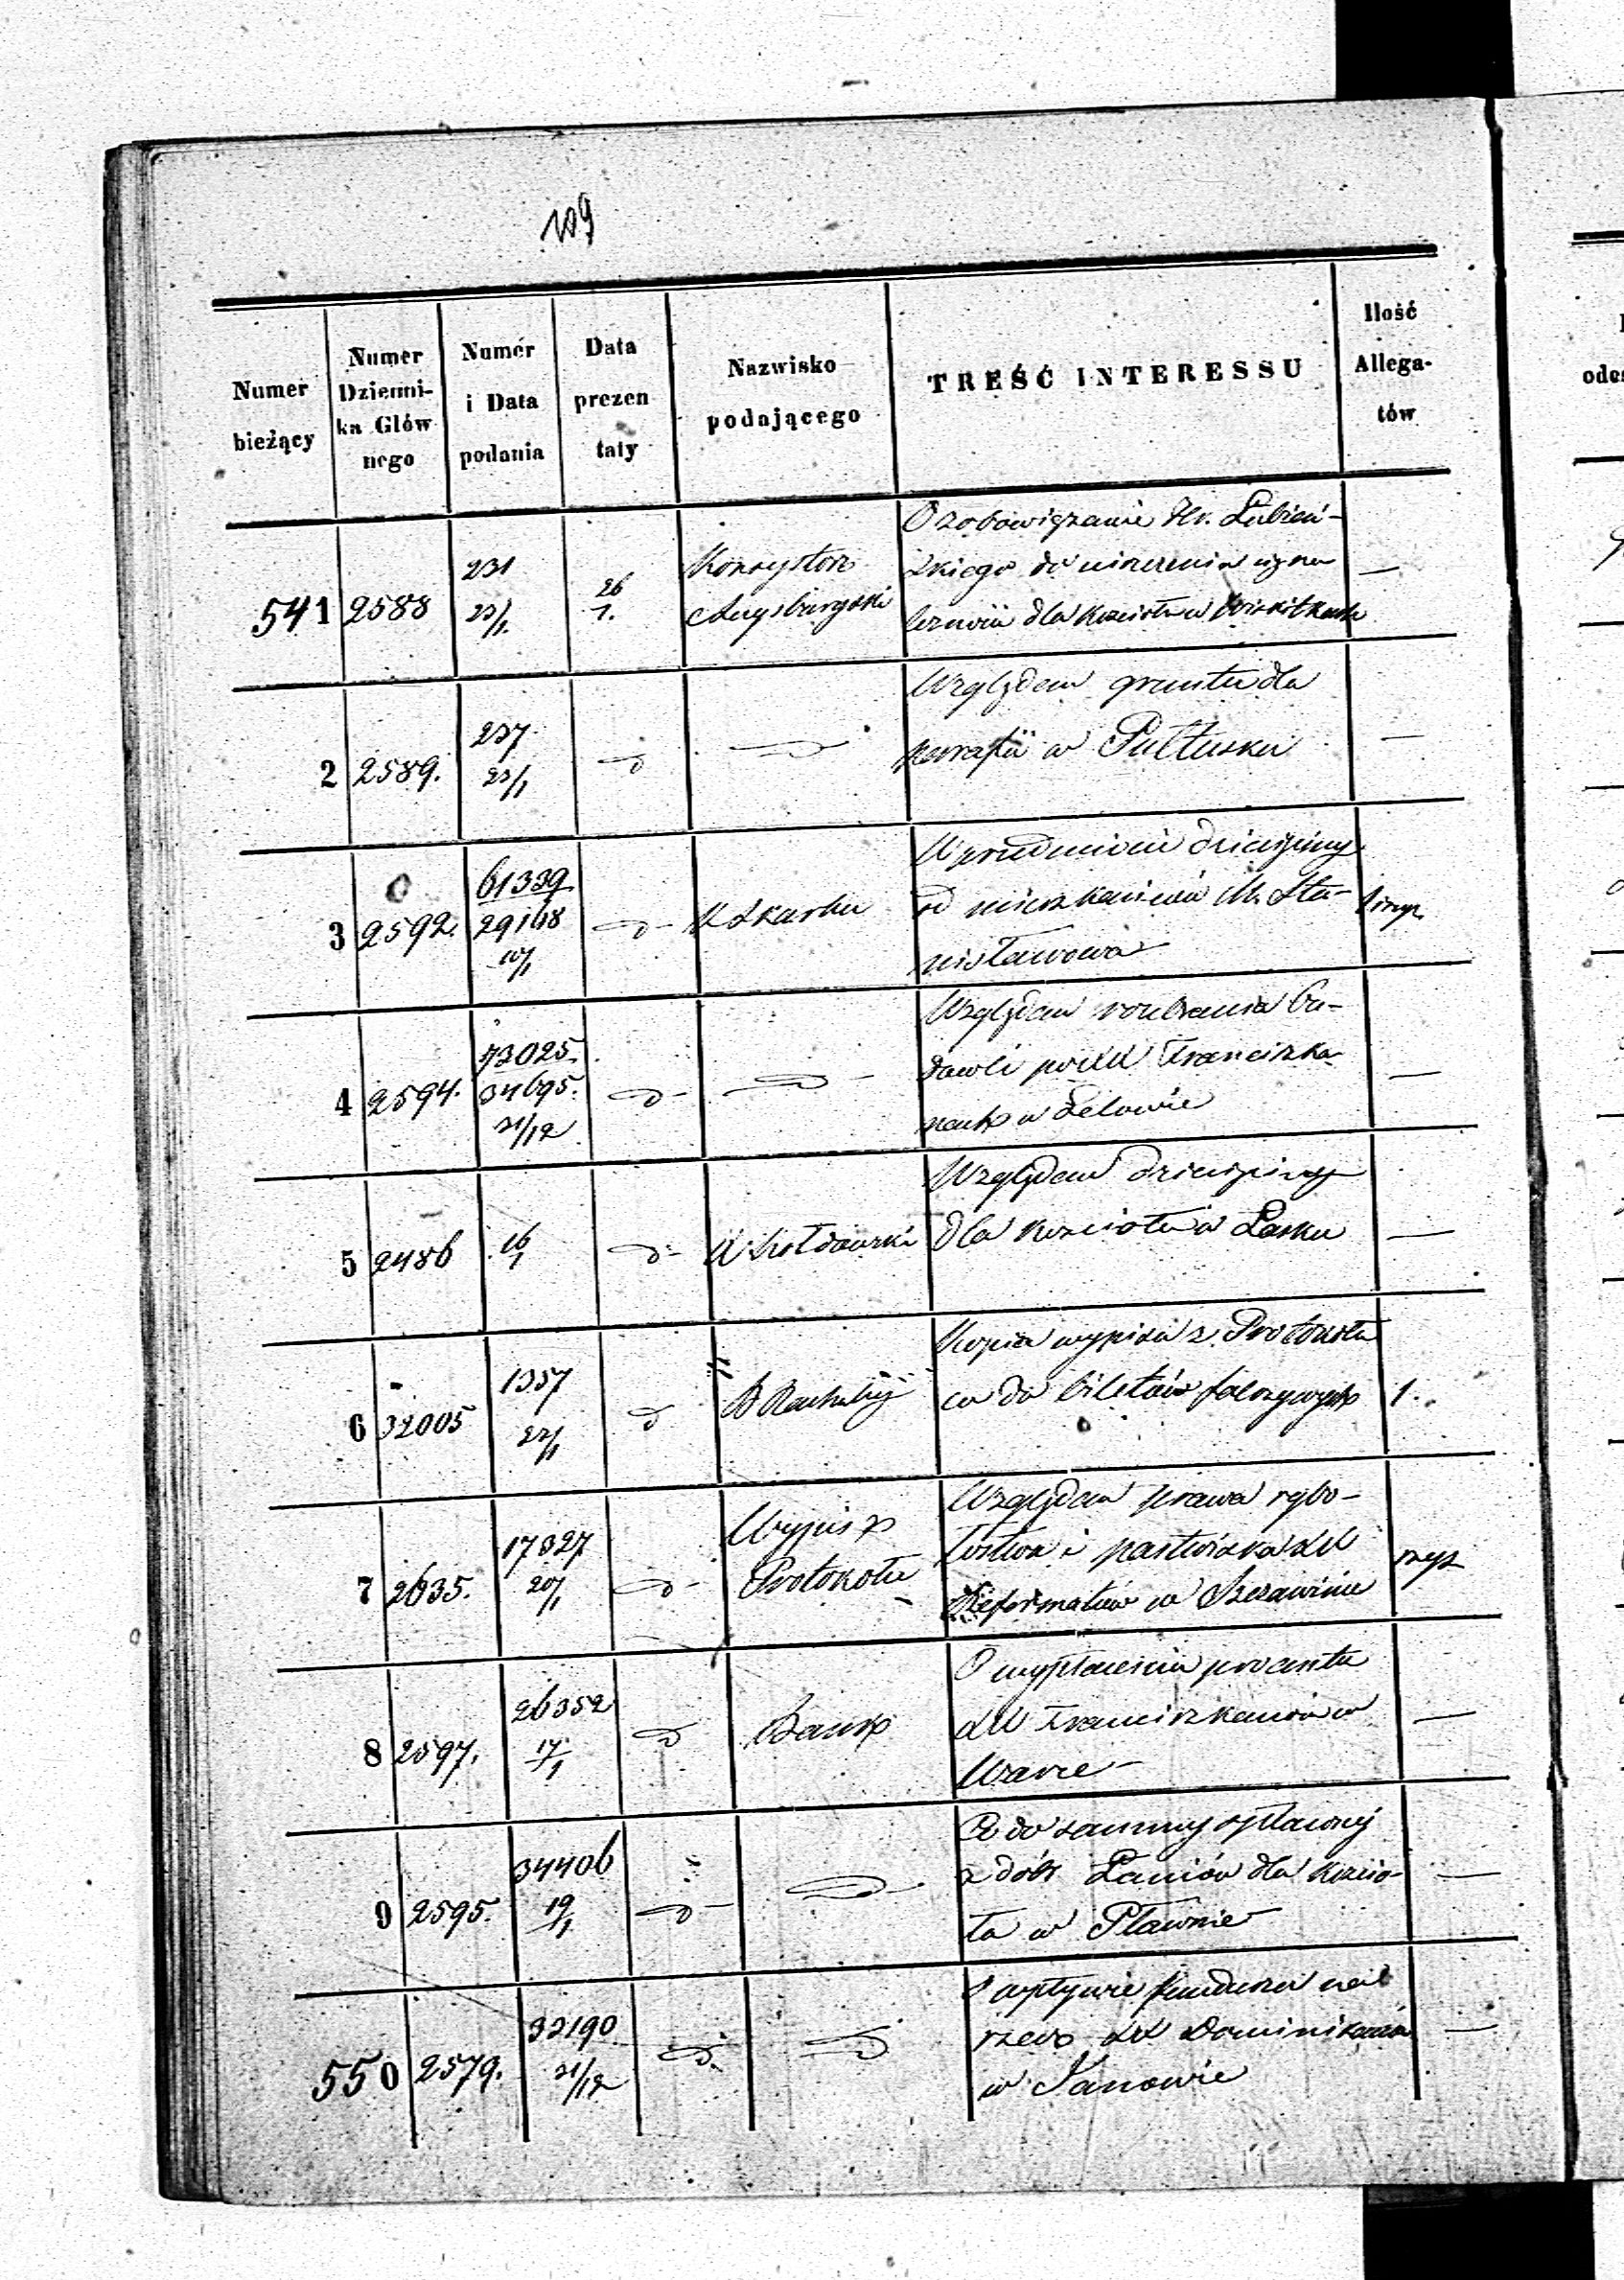 109
Numer bieżący
Numer Dzienni- ka Głów nego
Numér i Data podania
Data prezen taty
Nazwisko podającego
TREŚĆ INTERESSU
Ilość Allega- tów
541 2588 231 23/1 26 1. Konsystorz Augsburgski
O zobowiązanie Hr. Łubień-
skiego do
dla Kościoła w Wiskitkach —
2 2589. 237 23/1 d
Względem gruntu dla
parafii w Pułtusku —
3 2592. 61339 29148 10/1 d K Skarbu
W przedmiocie dziesięciny
od mieszkańców M. Sta-
nisławowa
4 2594. 73025. 34695. 31/12 d
Względem rozebrania bu-
dowli po XX Franciszka-
nach w Lelowie —
5 2486 16 1 d
Względem dziesięciny
dla kościoła w Łasku —
6 32005 1357 22/1 d
Kopia wypisu z Protokołu
co do biletów fałszywych 1.
7 2635. 17327 20/1 d Wypis z Protokołu
Względem prawa rybo-
łostwa i pastwiska XX
Reformatów w Szczawinie
8 2597. 26352 17/1 d Bank
O wypłacenia procentu
XX Franciszkanów w
Warce —
9 2595. 34406 19/1 d
Co do summy
z dóbr Łaniów dla Kościo-
ła w Pławnie —
550 2579. 32190 31/12 d
O wpływie funduszu
rzecz XX Dominikanów
w Janowie —